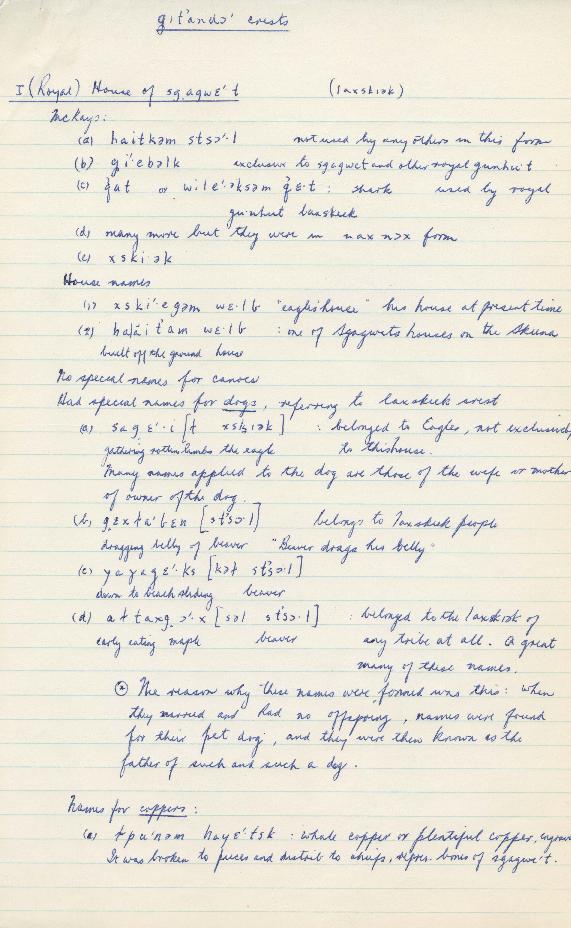 git'andɔ' crests
I (Royal) House of sgagwɛ't (laxskiək)
McKays:
(a) haitkəm stsɔ'·l not used by any others in this form
(b) gi'ebəlk exclusive to sgagwet and other royal gunhu't
(c) q̓at or wile'·əksəm q̓ɛ·t : shark used by royal
gunhut laxskeek
(d) many more but they were in nax nɔx form
(e) xski·ək
House names
(1) xski'·egəm wɛ·lb "eagle's house" his house at present time
(2) halait'am wɛ·lb : one of Sgagwets houses on the Skeena
built off the ground house
No special names for canoes
Had special names for dogs, referring to laxskeek crest
(a) sagɛ'·i [ł xskiək] : belonged to Eagles, not exclusively
gathering rotten limbs the eagle to this house.
Many names applied to the dog are those of the wife or mother
of owner of the dog.
(b) gɛxła'bɛn [st'sɔ·l] belongs to laxskeek people
dragging belly of beaver "Beaver drags his belly"
(c) yayagɛ'·ks [kəł st'sɔ·l]
down to beach sliding beaver
(d) ałtaxgɔ'·x [səl st'sɔ·l] : belonged to the laxskiək of
early eating maple beaver any tribe at all. A great
many of these names.
The reason why these names were formed was this: when
they married and had no offspring, names were found
for their pet dog, and they were then known as the
father of such and such a dog.
Names for coppers:
(a) łpu'nəm hayɛ'tsk : whale copper or plentiful copper,
It was broken to pieces and distrib to chiefs, repres. bones of sgagwɛ't.